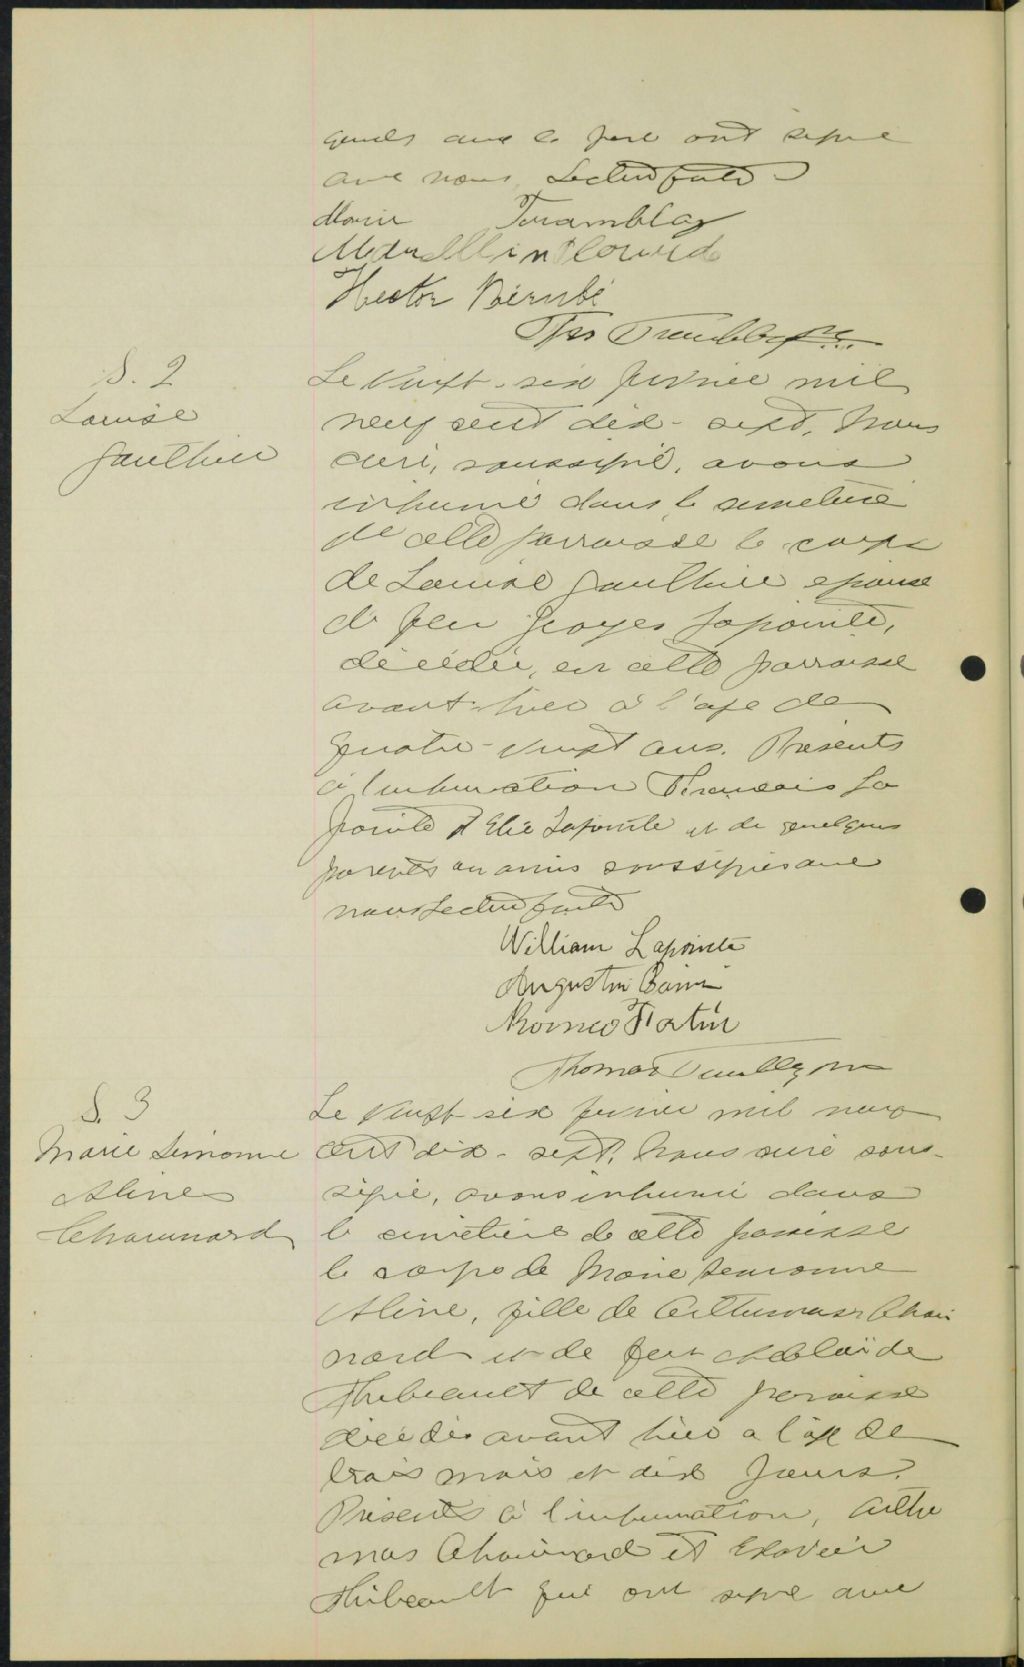 avec le père ont signé
avec nous. Lecture faite
Marie Tremblay
Hector Bérubé
Ths Tremblay ptre
S. 2
Louise
Gauthier
Le vingt-six février mil
neuf cent dix-sept, nous
curé, soussigné, avons
inhumé dans le cimetière
de cette parroisse le corps
de Louise Gauthier épouse
de feu Georges Lapointe,
décédée, en cette parroisse
avant-hier à l'age de
quatre-vingt ans. Présents
à l'inhumation François La
pointe & Elie Lapointe et de quelques
parents ou amis soussignés avec
nous Lecture faite
William Lapointe
Augustin
Romeo Fortin
Thomas Tremblay ptre
S. 3
Marie Simonne
Aline
Chouinard
Le vingt-six février mil neuf
cent dix-sept, nous curé sous-
signé, avons inhumé dans
le cimetière de cette paroisse
le corps de Marie Simonne
Aline, fille de Choui
nard et de feue Adélaïde
Thibeault de cette paroisse
décédée avant hier a l'age de
trois mois et dix jours.
Présents à l'inhumation,
mas Chouinard et Xavier
Thibeault qui ont signé avec